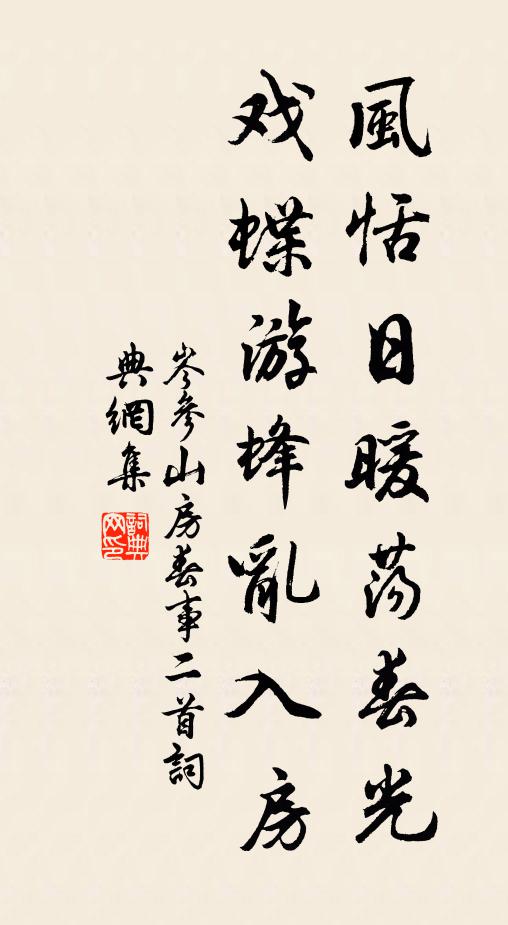 風恬日暖荡春光
戏蝶游蜂亂入房
岑參山房春事二首詞
典網集
詞典网印